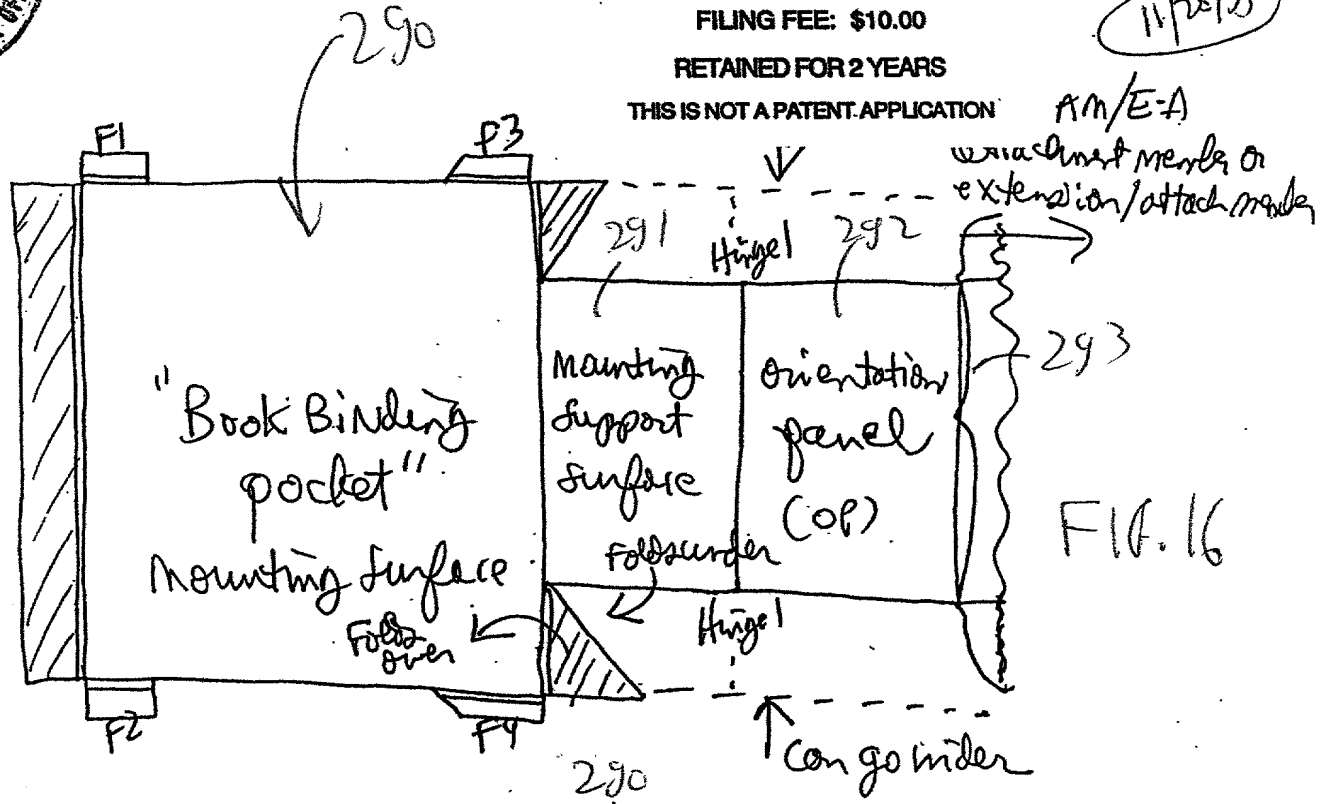 290
FILING FEE: $10.00
RETAINED FOR 2 YEARS
THIS IS NOT A PATENT APPLICATION
AM/E-A
attachment member or
extension/attach member
F1
F3
291
Hinge1
292
293
"Book Binding
pocket"
mounting surface
Mounting
support
surface
orientation
panel
(OP)
Folds under
Folds
over
Hinge1
FIG. 16
F2
F4
290
Can go wider